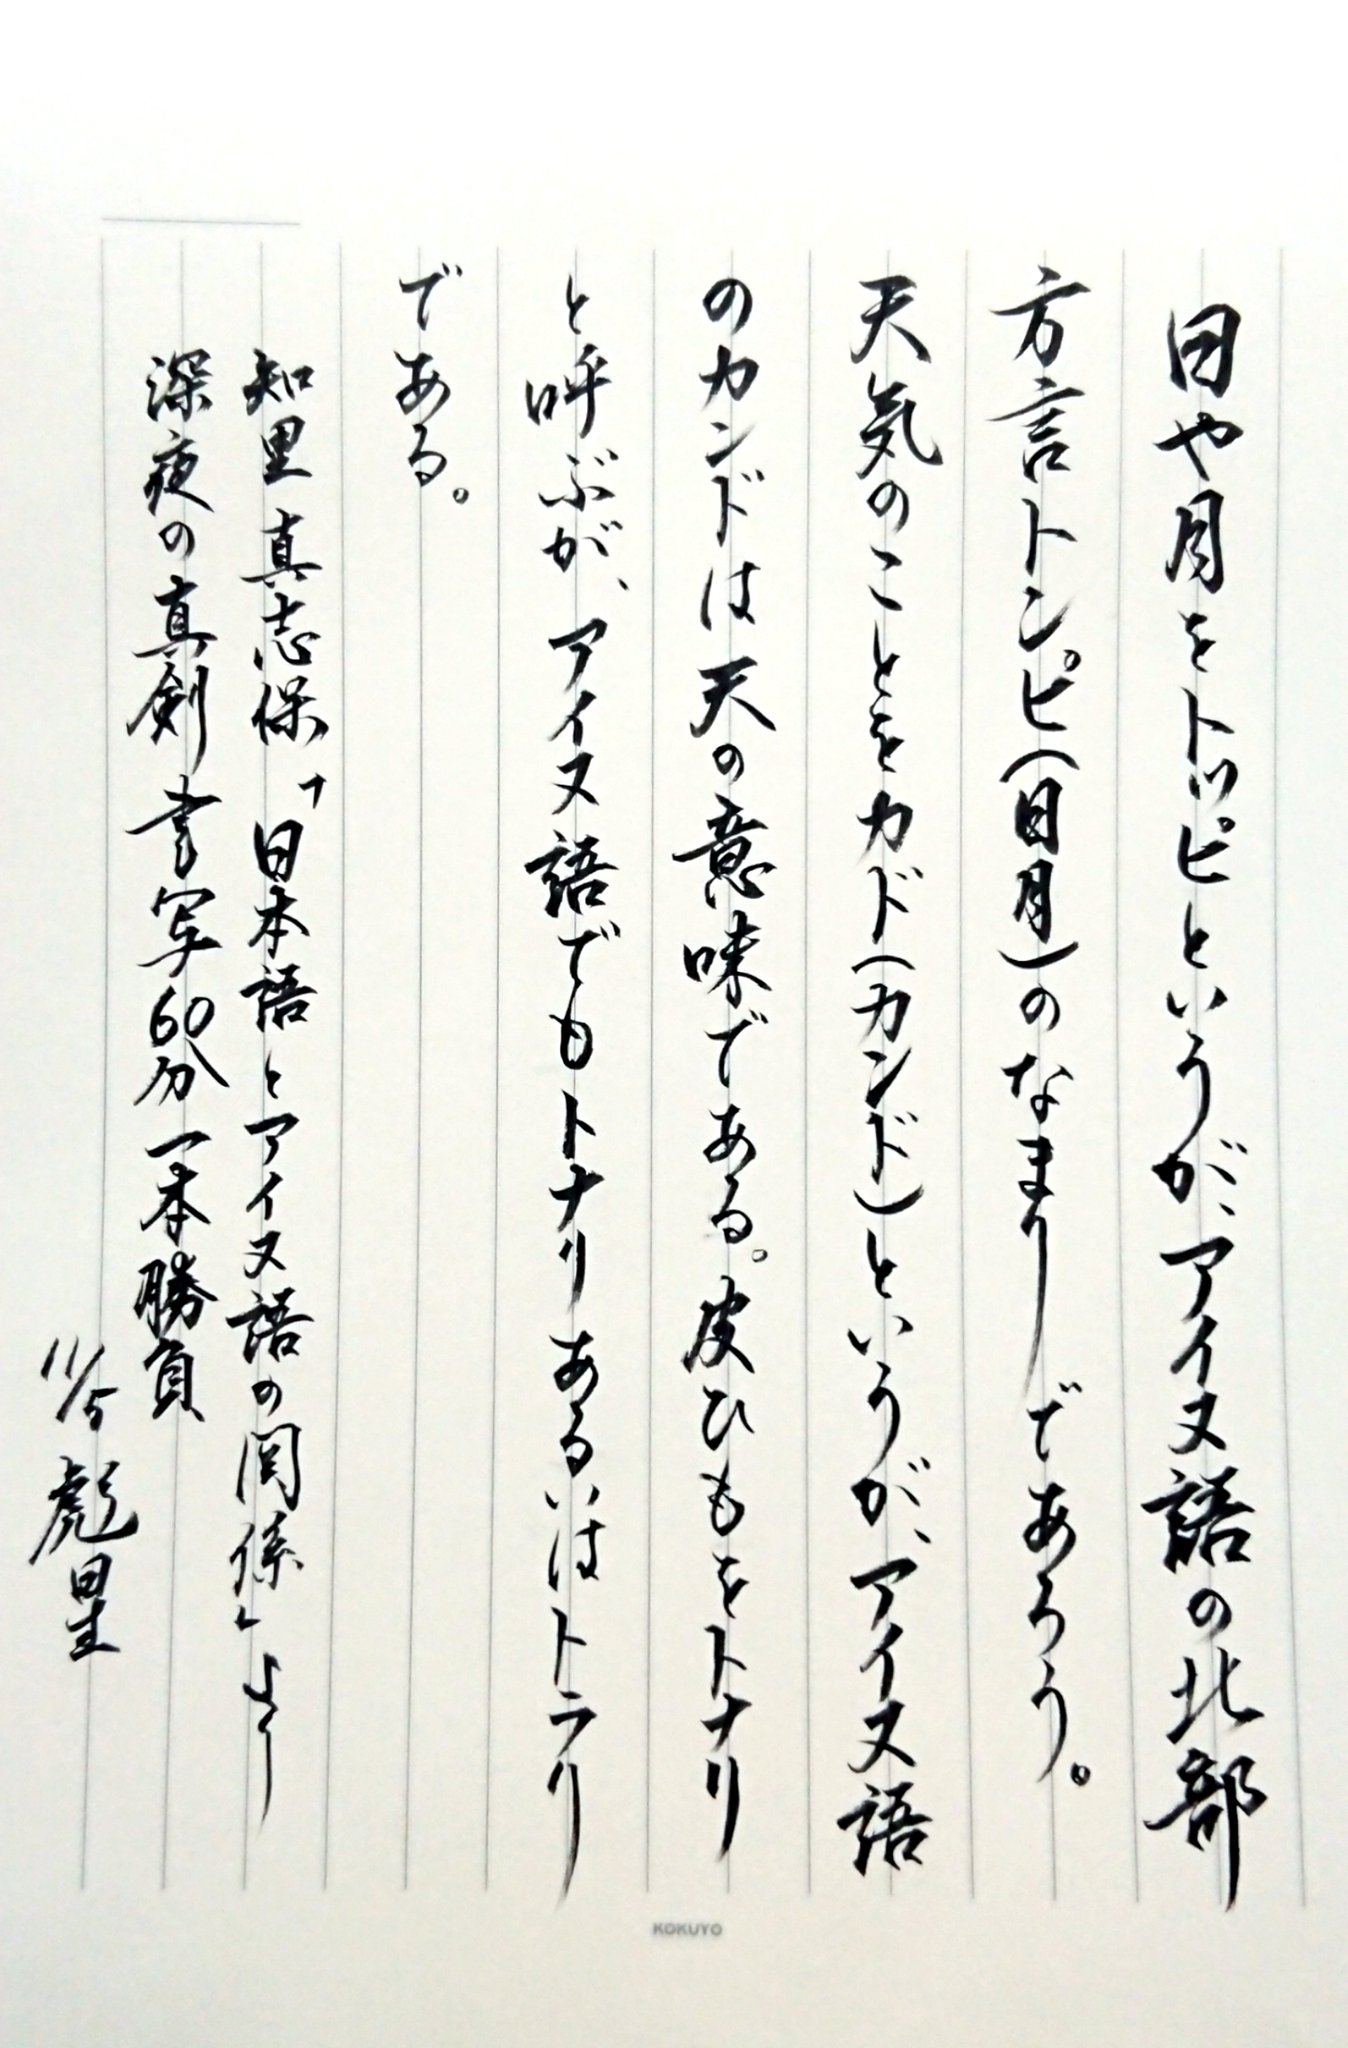 日や月をトッピというが、アイヌ語の北部
方言トンピ(日月)のなまりであろう。
天気のことをカド(カンド)というが、アイヌ語
のカンドは天の意味である。皮ひもをトナリ
と呼ぶが、アイヌ語でもトナリあるいはトラリ
である。
知里真志保「日本語とアイヌ語の関係」より
深夜の真剣書写60分一本勝負
11/5 彪星
KOKUYO